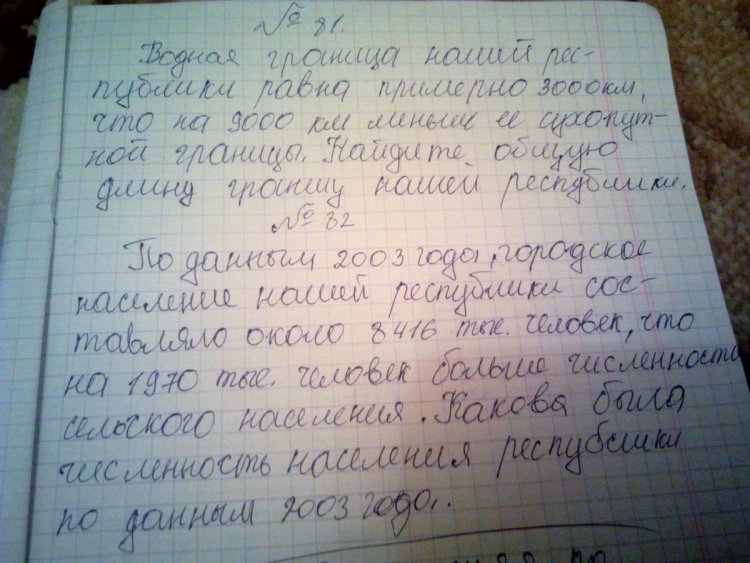 № 81.
Водная граница нашей рес-
публики равна примерно 3000км,
что на 9000 км меньше ее сухопут-
ной границы. Найдите общую
длину границ нашей республики.
№ 82
По данным 2003 года, городское
население нашей республики сос-
тавляло около 8416 тыс. человек, что
на 1970 тыс. человек больше численности
сельского населения. Какова была
численность населения республики
по данным 2003 года.